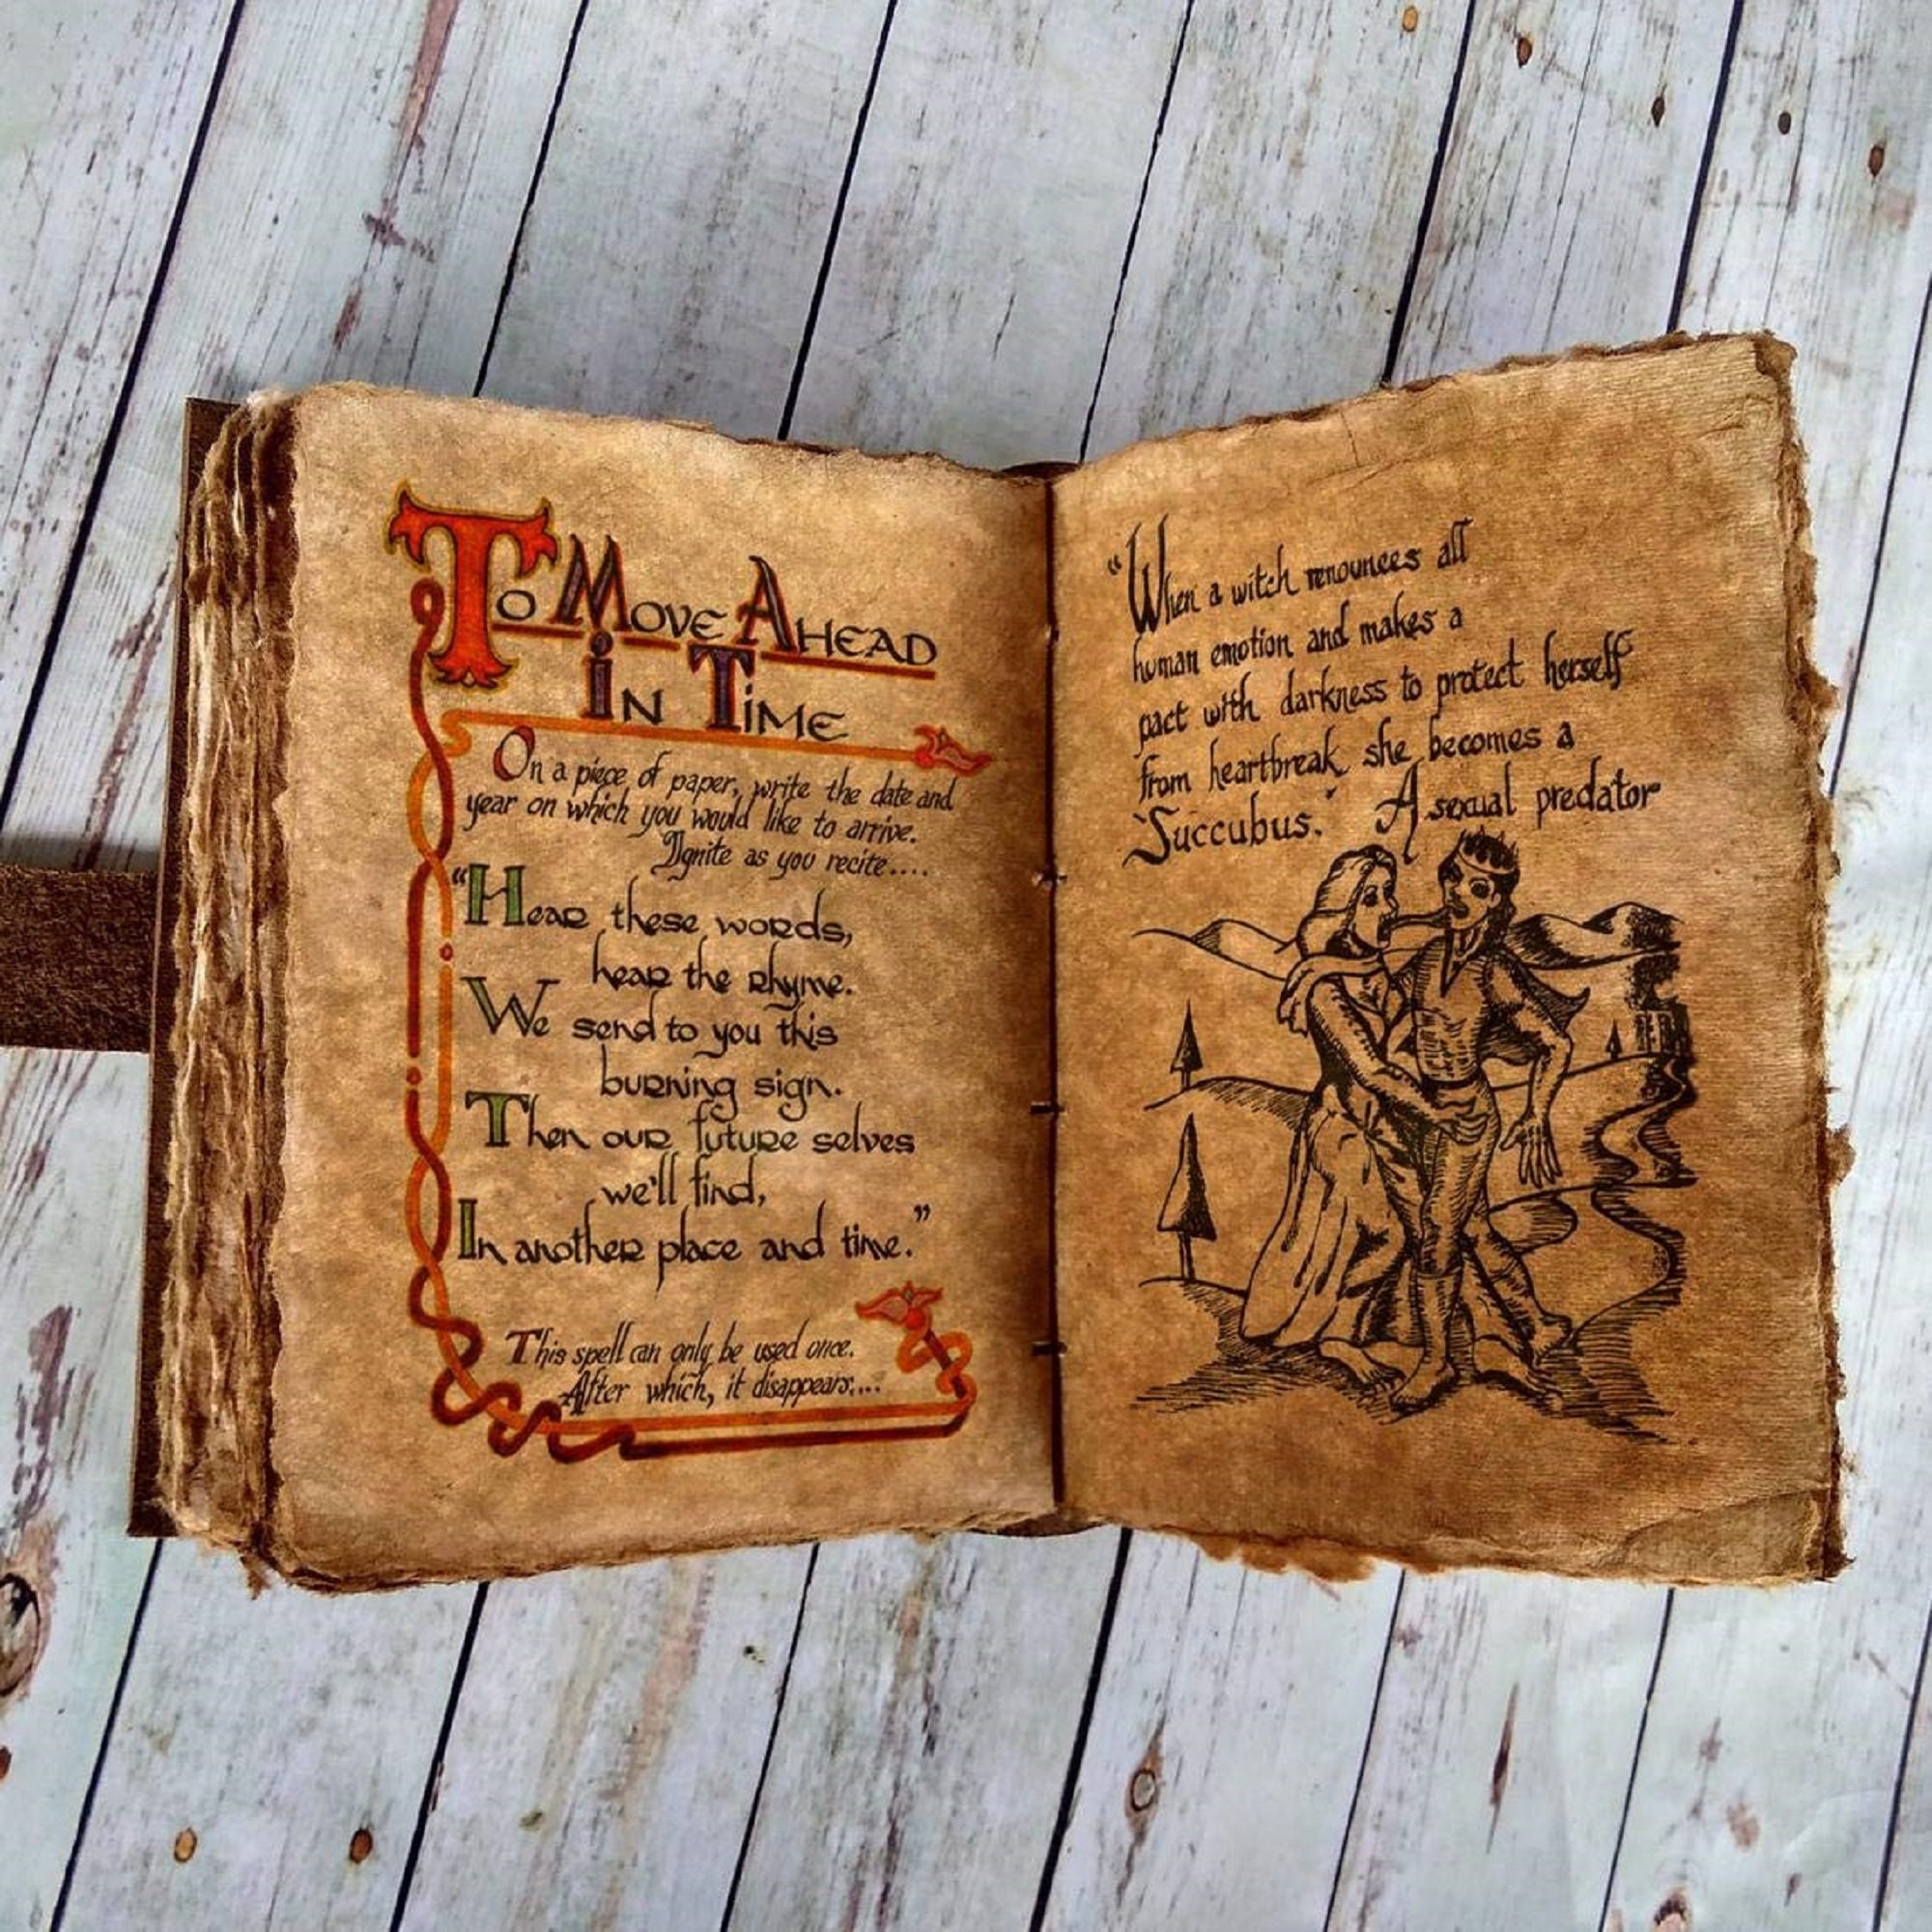 To Move Ahead
in Time
On a piece of paper, write the date and
year on which you would like to arrive.
Ignite as you recite....
"Hear these words,
hear the rhyme.
We send to you this
burning sign.
Then our future selves
we'll find,
In another place and time."
This spell can only be used once.
After which, it disappears....
"When a witch renounces all
human emotion and makes a
pact with darkness to protect herself
from heartbreak, she becomes a
'Succubus.' A sexual predator